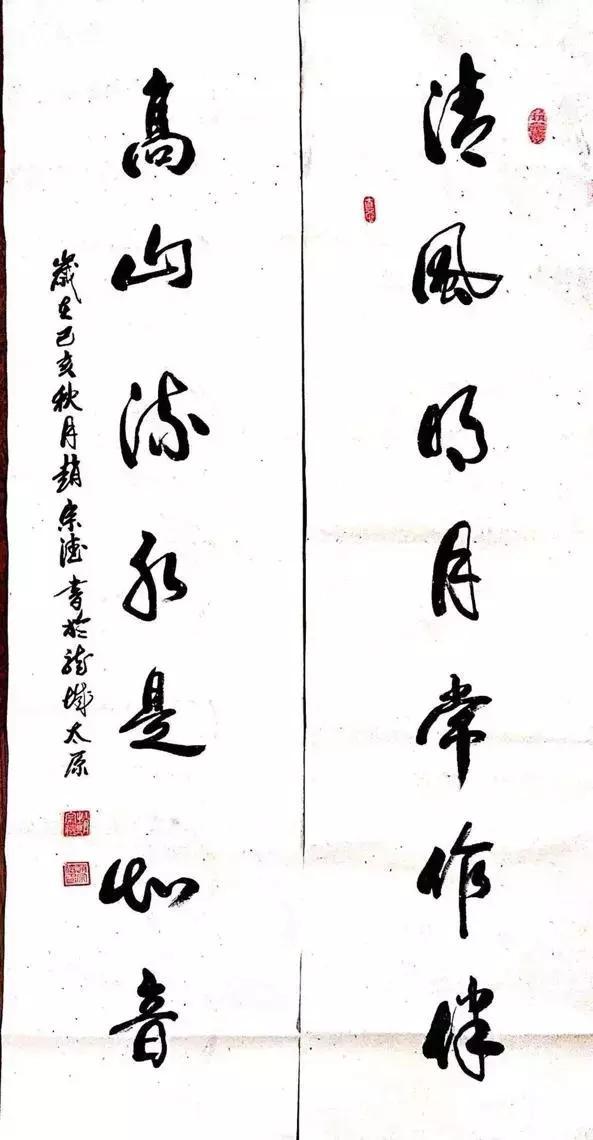 清風明月常作伴
高山流水是知音
歲在己亥秋月趙宗德書於龍城太原